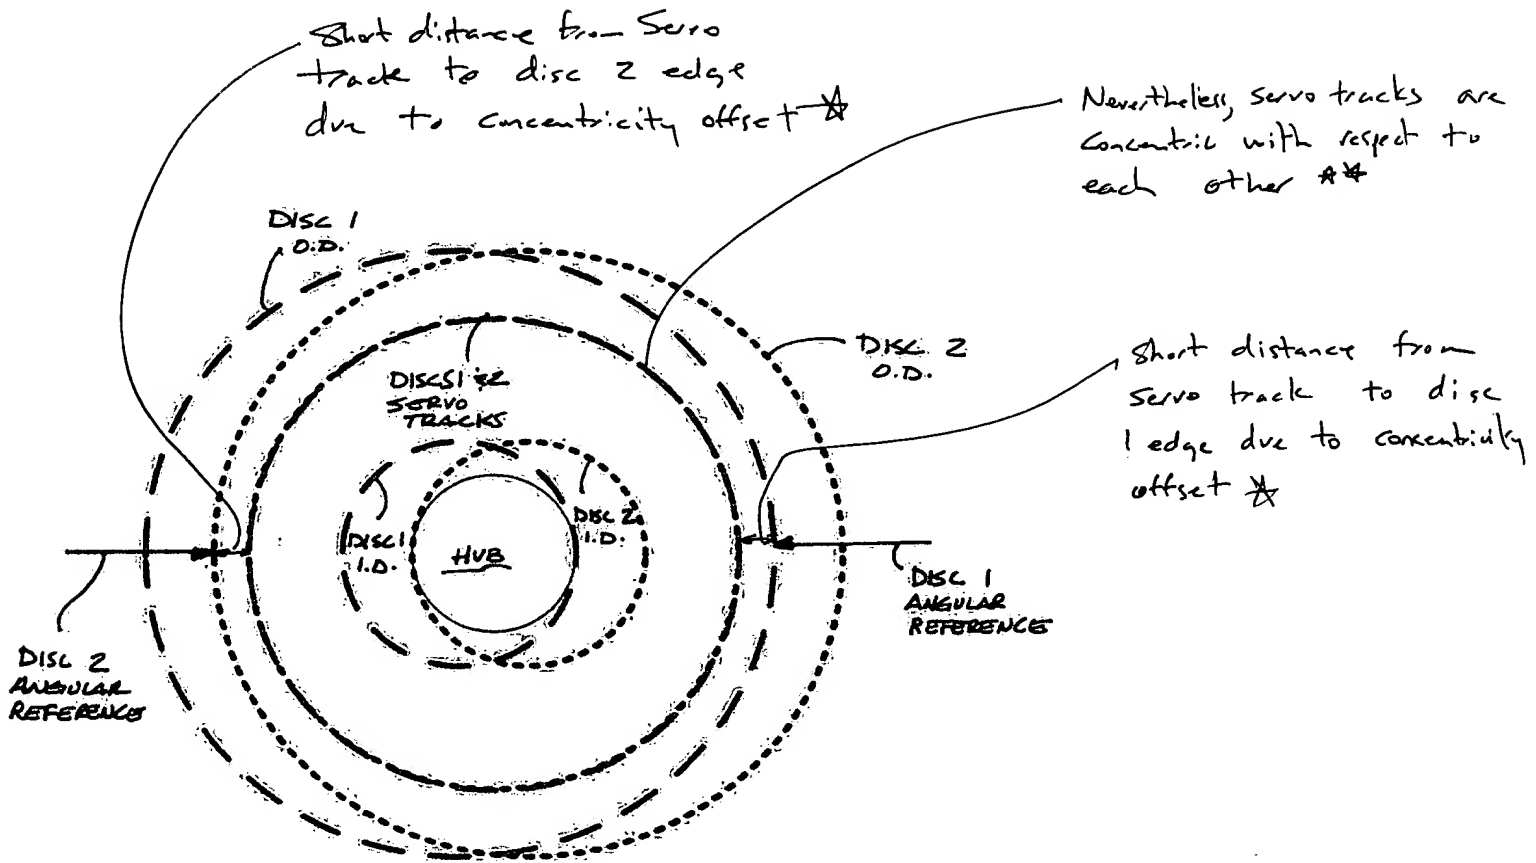 Short distance from Servo
track to disc 2 edge
due to concentricity offset ☆
Nevertheless, servo tracks are
concentric with respect to
each other ☆☆
DISC 1
O.D.
DISC 2
O.D.
Short distance from
servo track to disc
1 edge due to concentricity
offset ☆
DISCS 1 & 2
SERVO
TRACKS
DISC 1
I.D.
HUB
DISC 2
I.D.
DISC 1
ANGULAR
REFERENCE
DISC 2
ANGULAR
REFERENCE